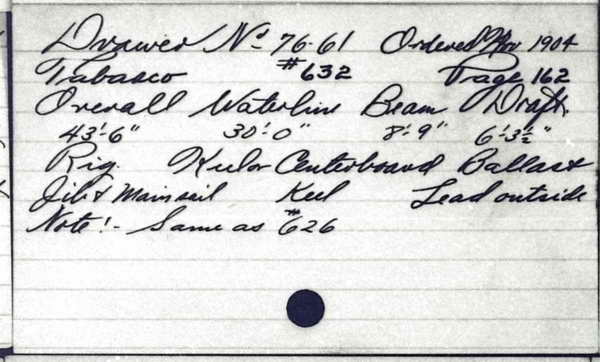 Drawer No 76-61 Ordered Nov 1904
Tabasco #632 Page 162
Overall Waterline Beam Draft
43'-6" 30'-0" 8'-9" 6'-3½"
Rig. Keel or Centerboard Ballast
Jib & Mainsail Keel Lead outside
Note!- Same as #626